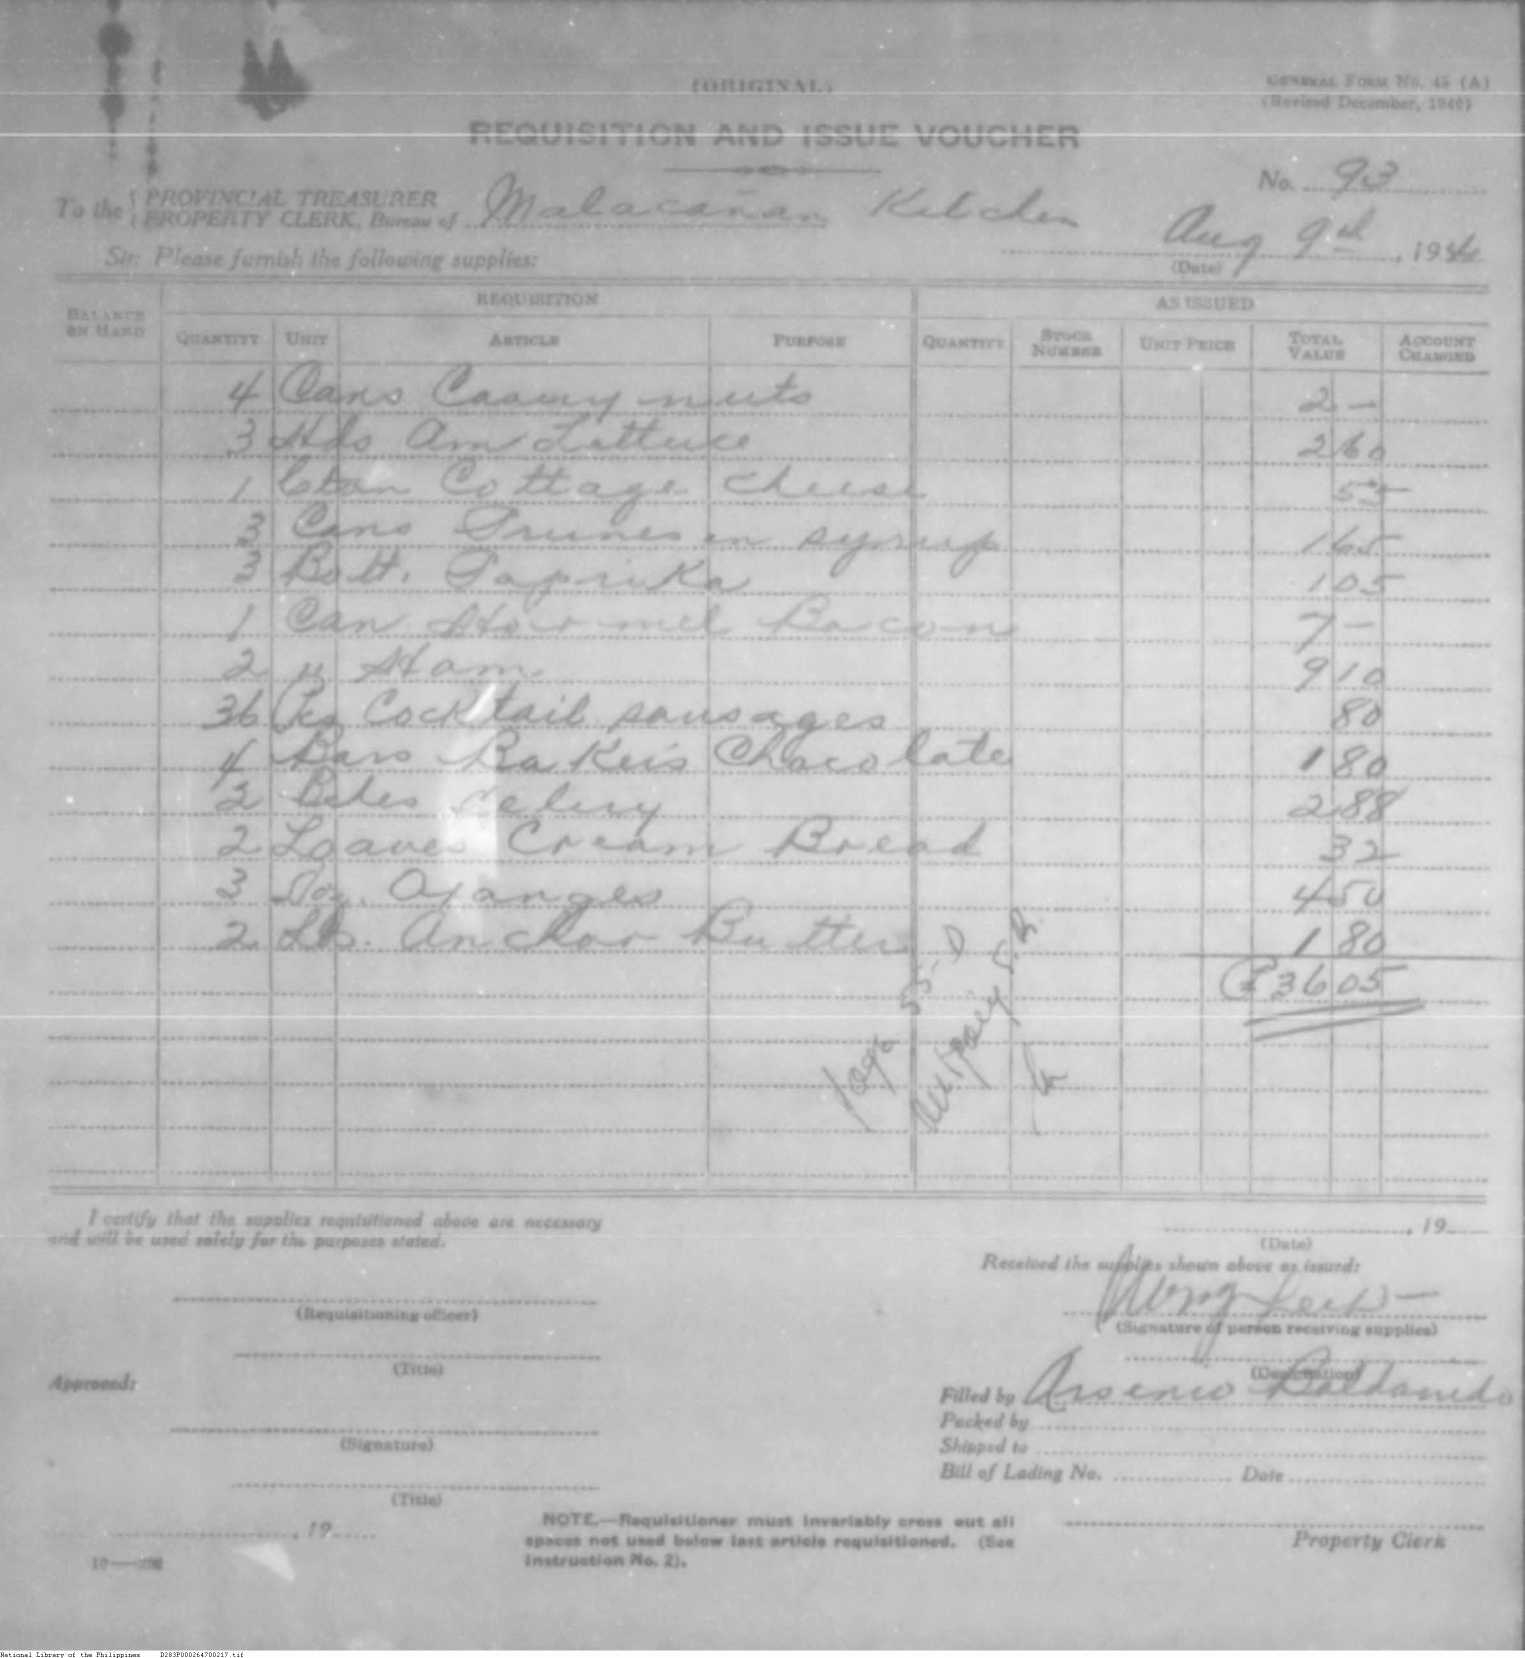 (ORIGINAL)
GENERAL FORM NO. 45 (A)
(Revised December, 1940)
REQUISITION AND ISSUE VOUCHER
No. 93
To the { PROVINCIAL TREASURER
PROPERTY CLERK, Bureau of Malacañan Kitchen
Aug 9
, 19
Sir: Please furnish the following supplies:
(Date)
BALANCE ON HAND
REQUISITION
AS ISSUED
QUANTITY UNIT ARTICLE PURPOSE QUANTITY STOCK NUMBER UNIT PRICE TOTAL VALUE ACCOUNT CHARGED
4 Cans nuts 2 —
3 Hds Am Lettuce 2 60
1 Cottage Cheese 55
3 Cans Prunes in syrup 1 65
3 Bott. Paprika 1 05
1 Can Hormel Bacon 7 —
2 " Ham 9 10
36 Pcs Cocktail sausages 80
4 Bars Baker's Chocolate 1 80
2 Celery 2 88
2 Loaves Cream Bread 32
3 Doz. Oranges 4 50
2 Lbs. Anchor Butter 1 80
₱36 05
I certify that the supplies requisitioned above are necessary
and will be used solely for the purposes stated.
, 19
(Date)
Received the supplies shown above as issued:
(Requisitioning officer)
(Signature of person receiving supplies)
(Title)
(Designation)
Approved:
Filled by Arsenio
Packed by
(Signature)
Shipped to
Bill of Lading No. Date
(Title)
, 19
NOTE.—Requisitioner must invariably cross out all
spaces not used below last article requisitioned. (See
Instruction No. 2).
Property Clerk
National Library of the Philippines D283P000264700217.tif